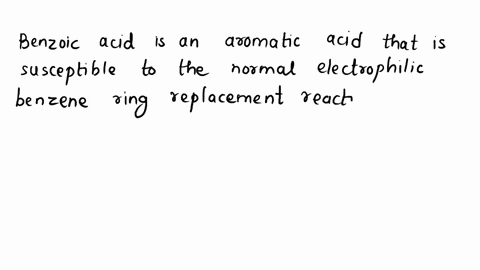 Benzoic acid is an aromatic acid that is
susceptible to the normal electrophilic
benzene ring replacement react